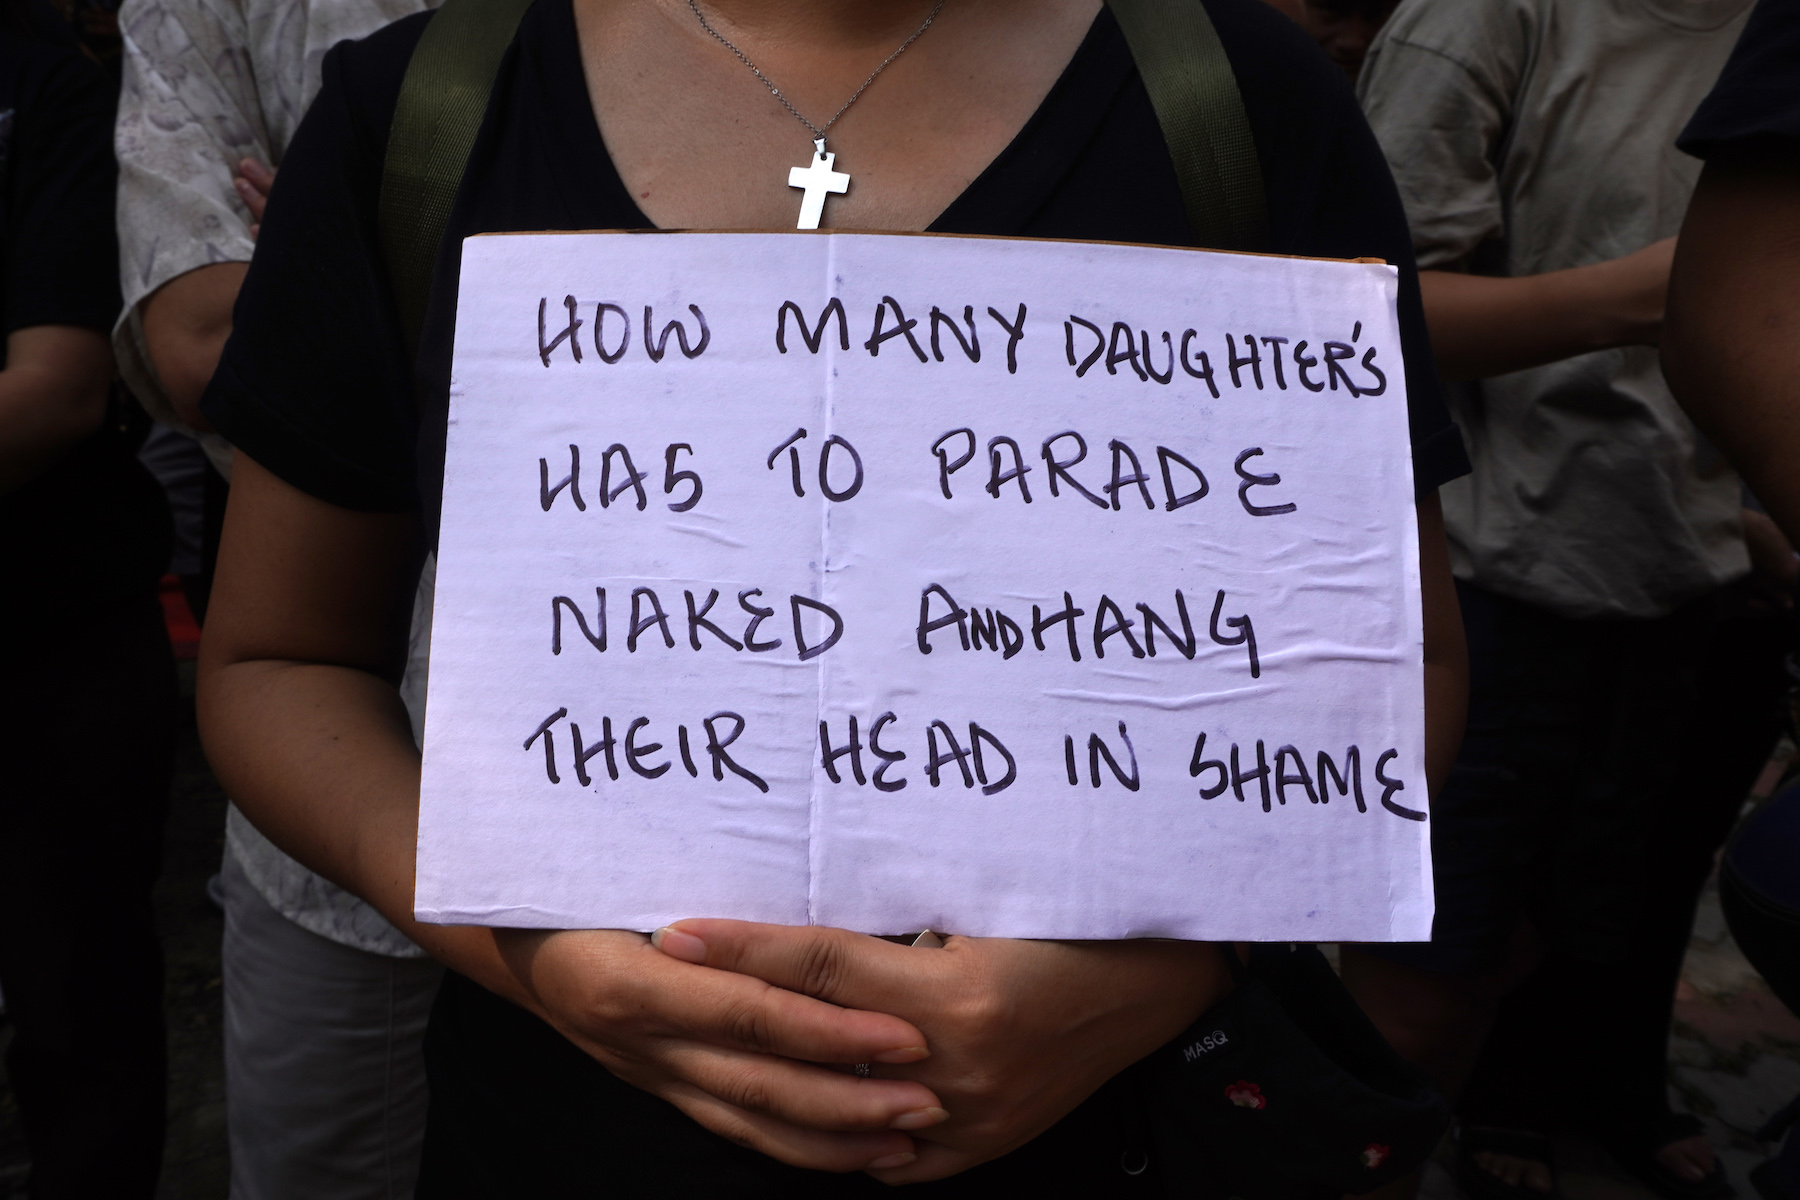 HOW MANY DAUGHTER'S
HAS TO PARADE
NAKED AND HANG
THEIR HEAD IN SHAME
MASQ